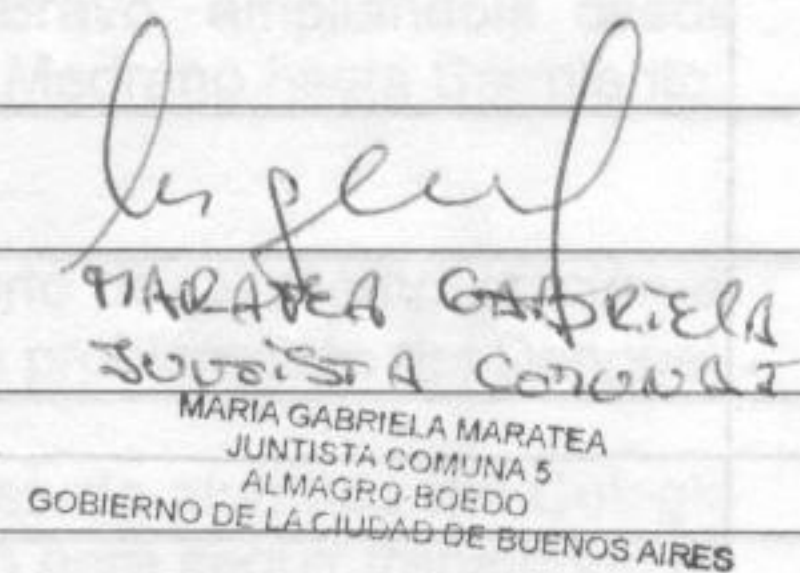 MARATEA GABRIELA
JUNTISTA COMUNAL
MARIA GABRIELA MARATEA
JUNTISTA COMUNA 5
ALMAGRO BOEDO
GOBIERNO DE LA CIUDAD DE BUENOS AIRES